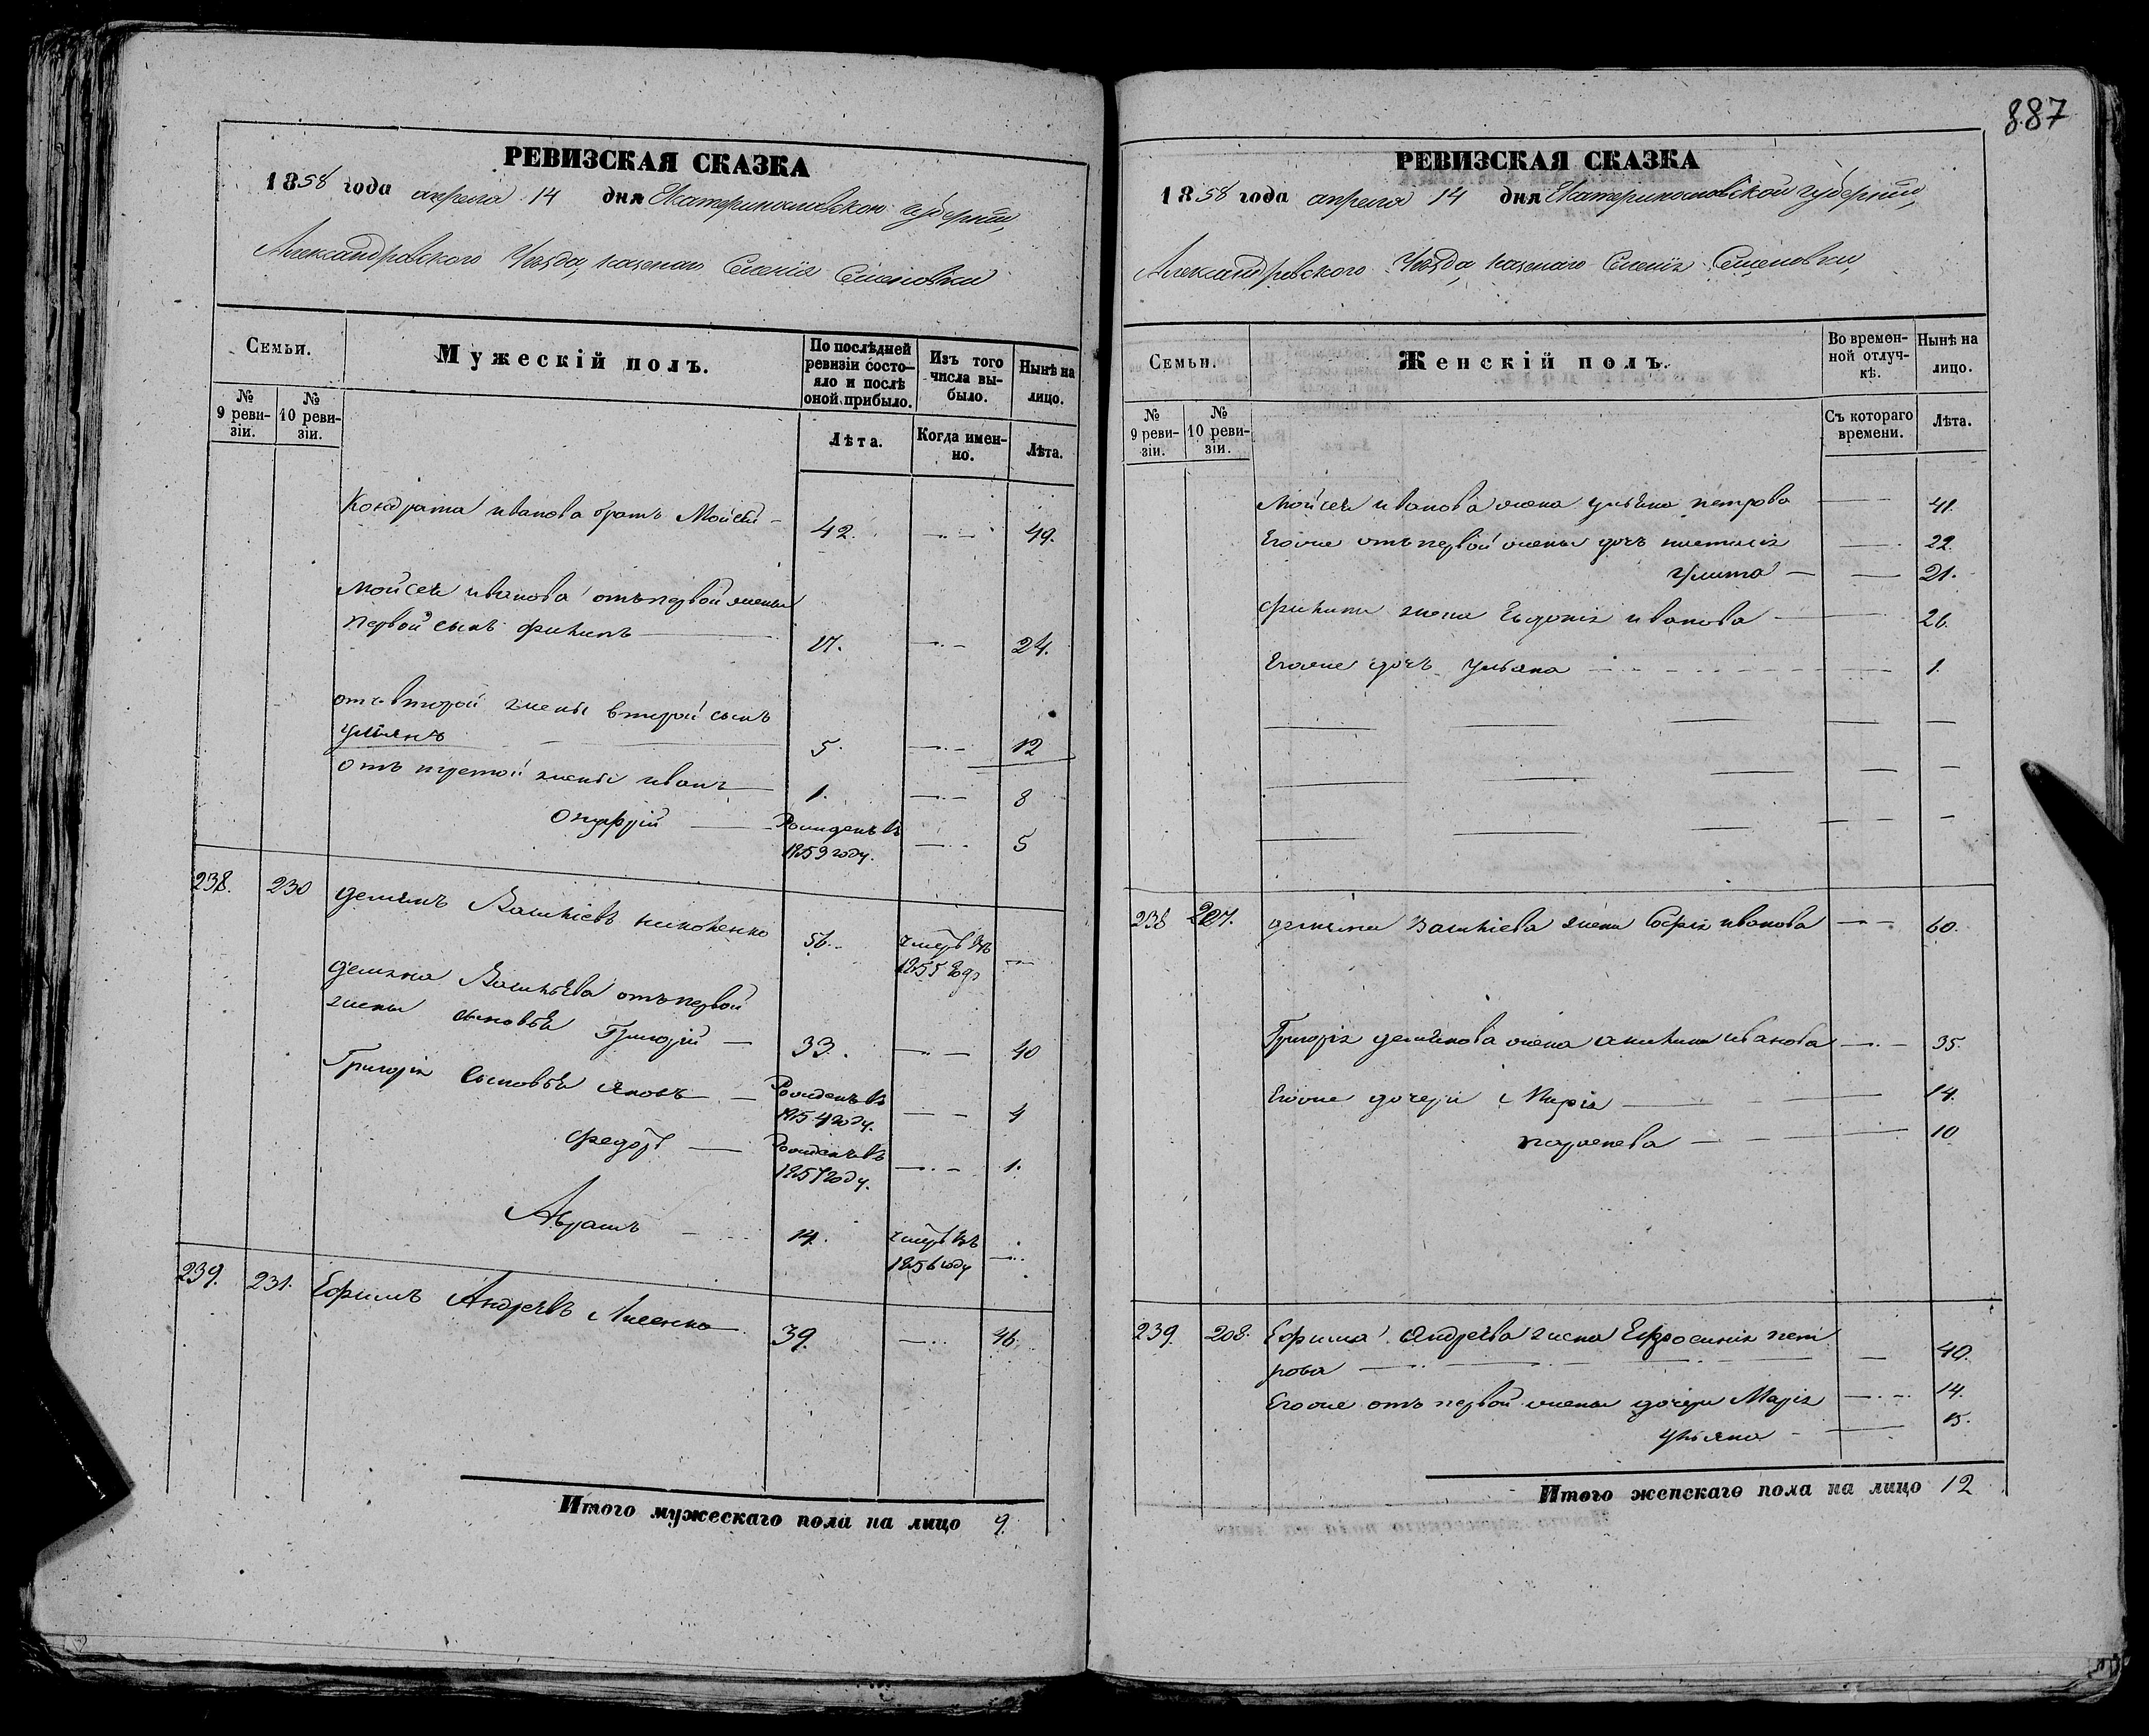 887
РЕВИЗСКАЯ СКАЗКА
1858 года апреля 14 дня Екатеринославской губернии,
Александровского Уезда, казенаго Селенія Семеновки
Семьи.
Мужескій полъ.
По послѣдней ревизіи состояло и послѣ оной прибыло.
Изъ того числа выбыло.
Нынѣ на лицо.
№ 9 ревизіи.
№ 10 ревизіи.
Лѣта.
Когда именно.
Лѣта.
Кондрата иванова братъ Мойсей 42. 49.
Мойсея иванова отъ первой жены
первой сынъ филипъ 17. 24.
отъ второй жены второй сынъ
улiянъ 5. 12
отъ третой жены иванъ 1. 8
Онуфрій Рожденъ въ 5
году.
238. 230 демянъ Васильевъ 56. умеръ въ
1855 году
демяна Васильева отъ первой
жены сыновья Григорій 33. 40
Григорія Сыновья яковъ Рожденъ въ 4
1854 году.
федоръ Рожденъ въ 1.
1857 году.
Абрамъ 14. умеръ въ
1856 году
239. 231. Ефимъ Андреевъ Лисенко 39. 46.
Итого мужескаго пола на лицо 9
РЕВИЗСКАЯ СКАЗКА
1858 года апреля 14 дня Екатеринославской губернии,
Александровского Уезда, казенаго Селенія Семеновки,
Семьи.
Женскій полъ.
Во временной отлучкѣ.
Нынѣ на лицо.
№ 9 ревизіи.
№ 10 ревизіи.
Съ котораго времени.
Лѣта.
Мойсея иванова жена ульяна петрова 41.
Егоже отъ первой жены дочъ 22.
улита 21.
филипа жена Евдокія иванова 26.
Егоже дочъ ульяна 1.
238 207. демяна Васильева жена Софія иванова 60.
Григорія демянова жена акилина иванова 35.
Егоже дочери Марія 14.
10
239. 208. Ефима Андреева жена Ефросинія пет
рова 40.
Егоже отъ первой жены дочери Марія 14.
ульяна 15.
Итого женскаго пола на лицо 12